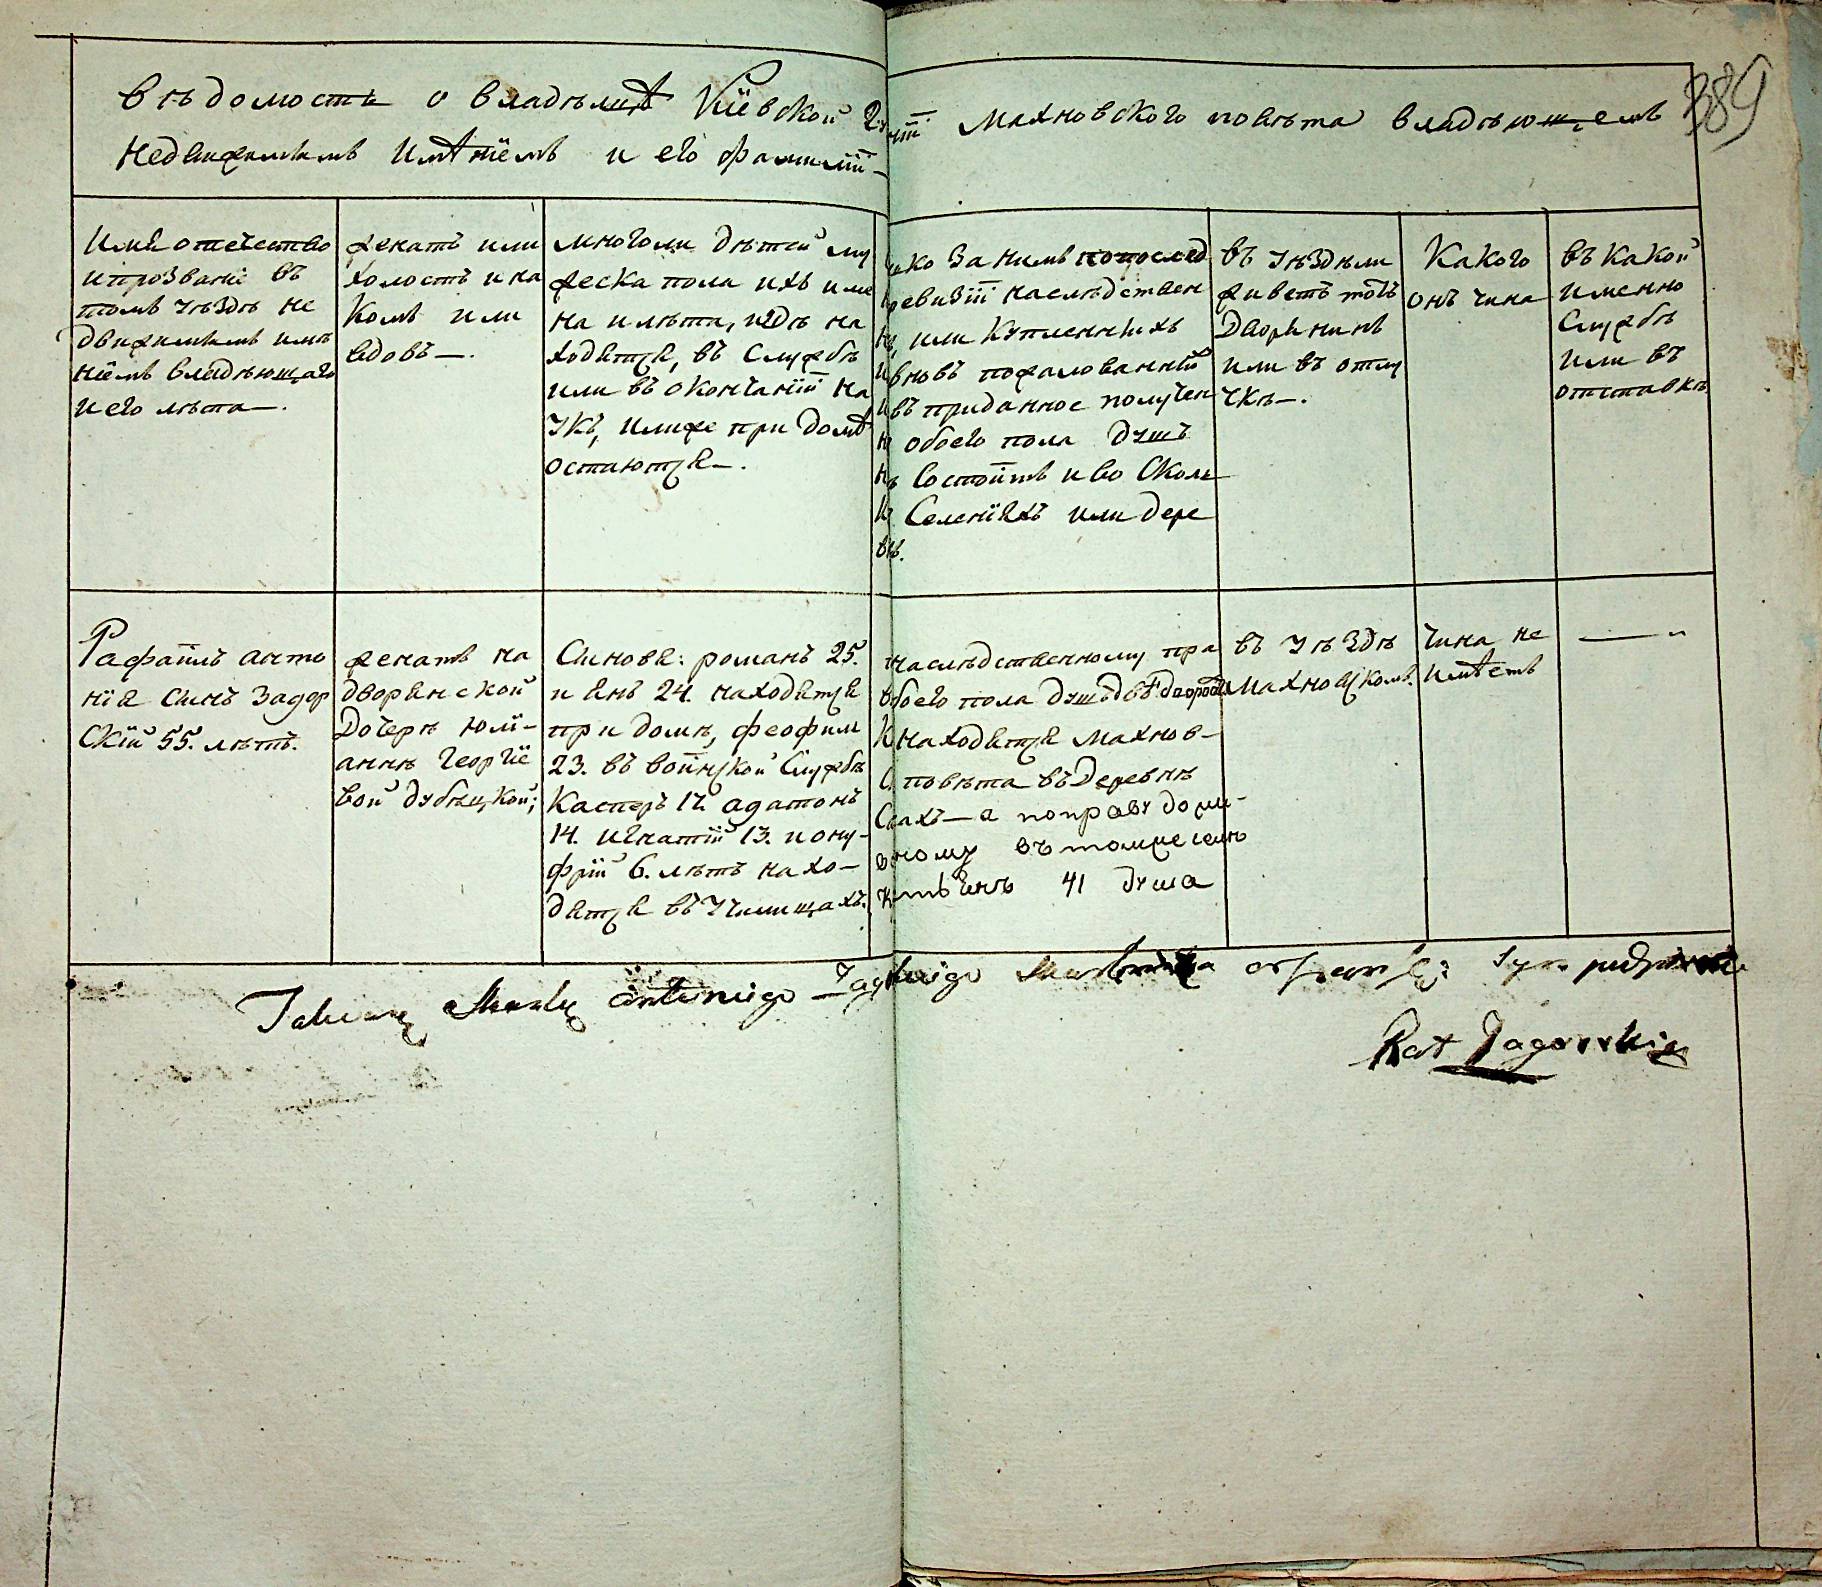 389
Вѣдомость о владѣлцѣ Кіевской Губерніи Махновскаго повѣта владѣющемъ
недвижимымъ имѣніемъ и его фамиліи
Имя отечество
и прозваніе въ
томъ уѣздѣ не
движимымъ имѣ
ніемъ владѣющаго
и его лѣта —.
женатъ или
холостъ и на
комъ или
вдовъ —.
многоли дѣтей му
жеска пола ихъ име
на и лѣта, и гдѣ на
ходятся, въ службѣ
или въ окончаніи на
укъ, илиже при домѣ
остаются —.
ко за нимъ попослед
ревизіи наслѣдствен
или купленныхъ
вновъ пожалованный
въ приданное получен
обоего пола душъ
состоитъ и во сколь
селеніяхъ или дере
вн.
въ уѣздѣли
живетъ тотъ
дворянинъ
или въ отлу
чкѣ —.
Какого
онъ чина
въ какой
именно
службѣ
или въ
отставкѣ
Рафаилъ анто
нія сынъ Загор
скій 55. лѣтъ.
женатъ на
дворянской
дочерѣ юлі-
аннѣ Георгіе
вой дубѣцкой;
Сыновя: романъ 25.
и янъ 24. находятся
при домѣ, феофилъ
23. въ воинской службѣ
Касперъ 17. агатонъ
14. игнатій 13. и ону-
фрій 6. лѣтъ нахо-
дятся въ училищахъ.
наслѣдственному пра
обоего пола душъ дворовыхъ
находятся махнов-
повѣта въ деревнѣ
ахъ — а поправу дожи-
ному въ томже селѣ
41 душа
въ уѣздѣ
махновскомъ.
чина не
имѣетъ
— "
Antoniego Zagorskiego
Raf Zagorski